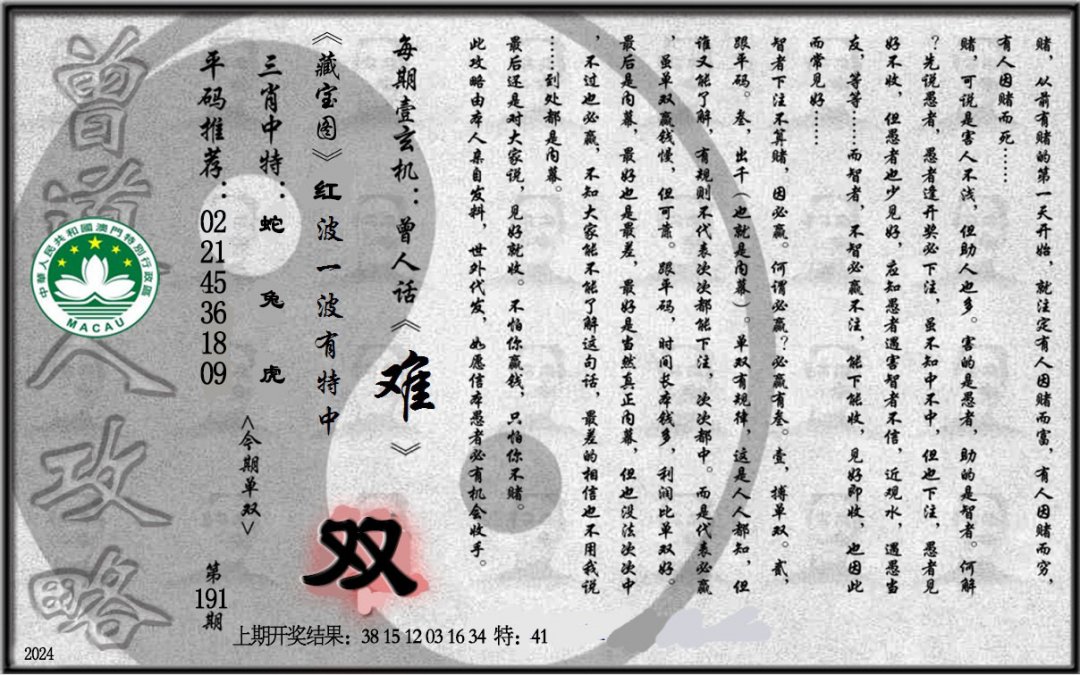 赌，从前有赌的第一天开始，就注定有人因赌而富，有人因赌而穷，
有人因赌而死……
赌，可说是害人不浅，但助人也多。害的是愚者，助的是智者。何解
？先说愚者，愚者逢开奖必下注，虽不知中不中，但也下注，愚者见
好不收，但愚者也少见好，应知愚者遇害智者不信，近观水，遇愚当
友，等等……而智者，不智必赢不注，能下能收，见好即收，也因此
而常见好……
智者下注不算赌，因必赢。何谓必赢？必赢有叁。壹，搏单双。贰，
跟平码。叁，出千（也就是内幕）。单双有规律，这是人人都知，但
谁又能了解，有规则不代表次次都能下注，次次都中。而是代表必赢
，虽单双赢钱慢，但可靠。跟平码，时间长本钱多，利润比单双好。
最后是内幕，最好也是最差，最好是当然真正内幕，但也没法次次中
，不过也必赢，不知大家能不能了解这句话，最差的相信也不用我说
……到处都是内幕。
最后还是对大家说，见好就收。不怕你赢钱，只怕你不赌。
此攻略由本人亲自发料，世外代发，如愿信本愚者必有机会收手。
每期壹玄机：曾人话《难》
《藏宝图》红波一波有特中
双
<今期单双>
三肖中特：蛇 兔 虎
平码推荐：02 21 45 36 18 09
第191期
曾道人攻略
中華人民共和國澳門特別行政區
MACAU
上期开奖结果：38 15 12 03 16 34 特：41
2024